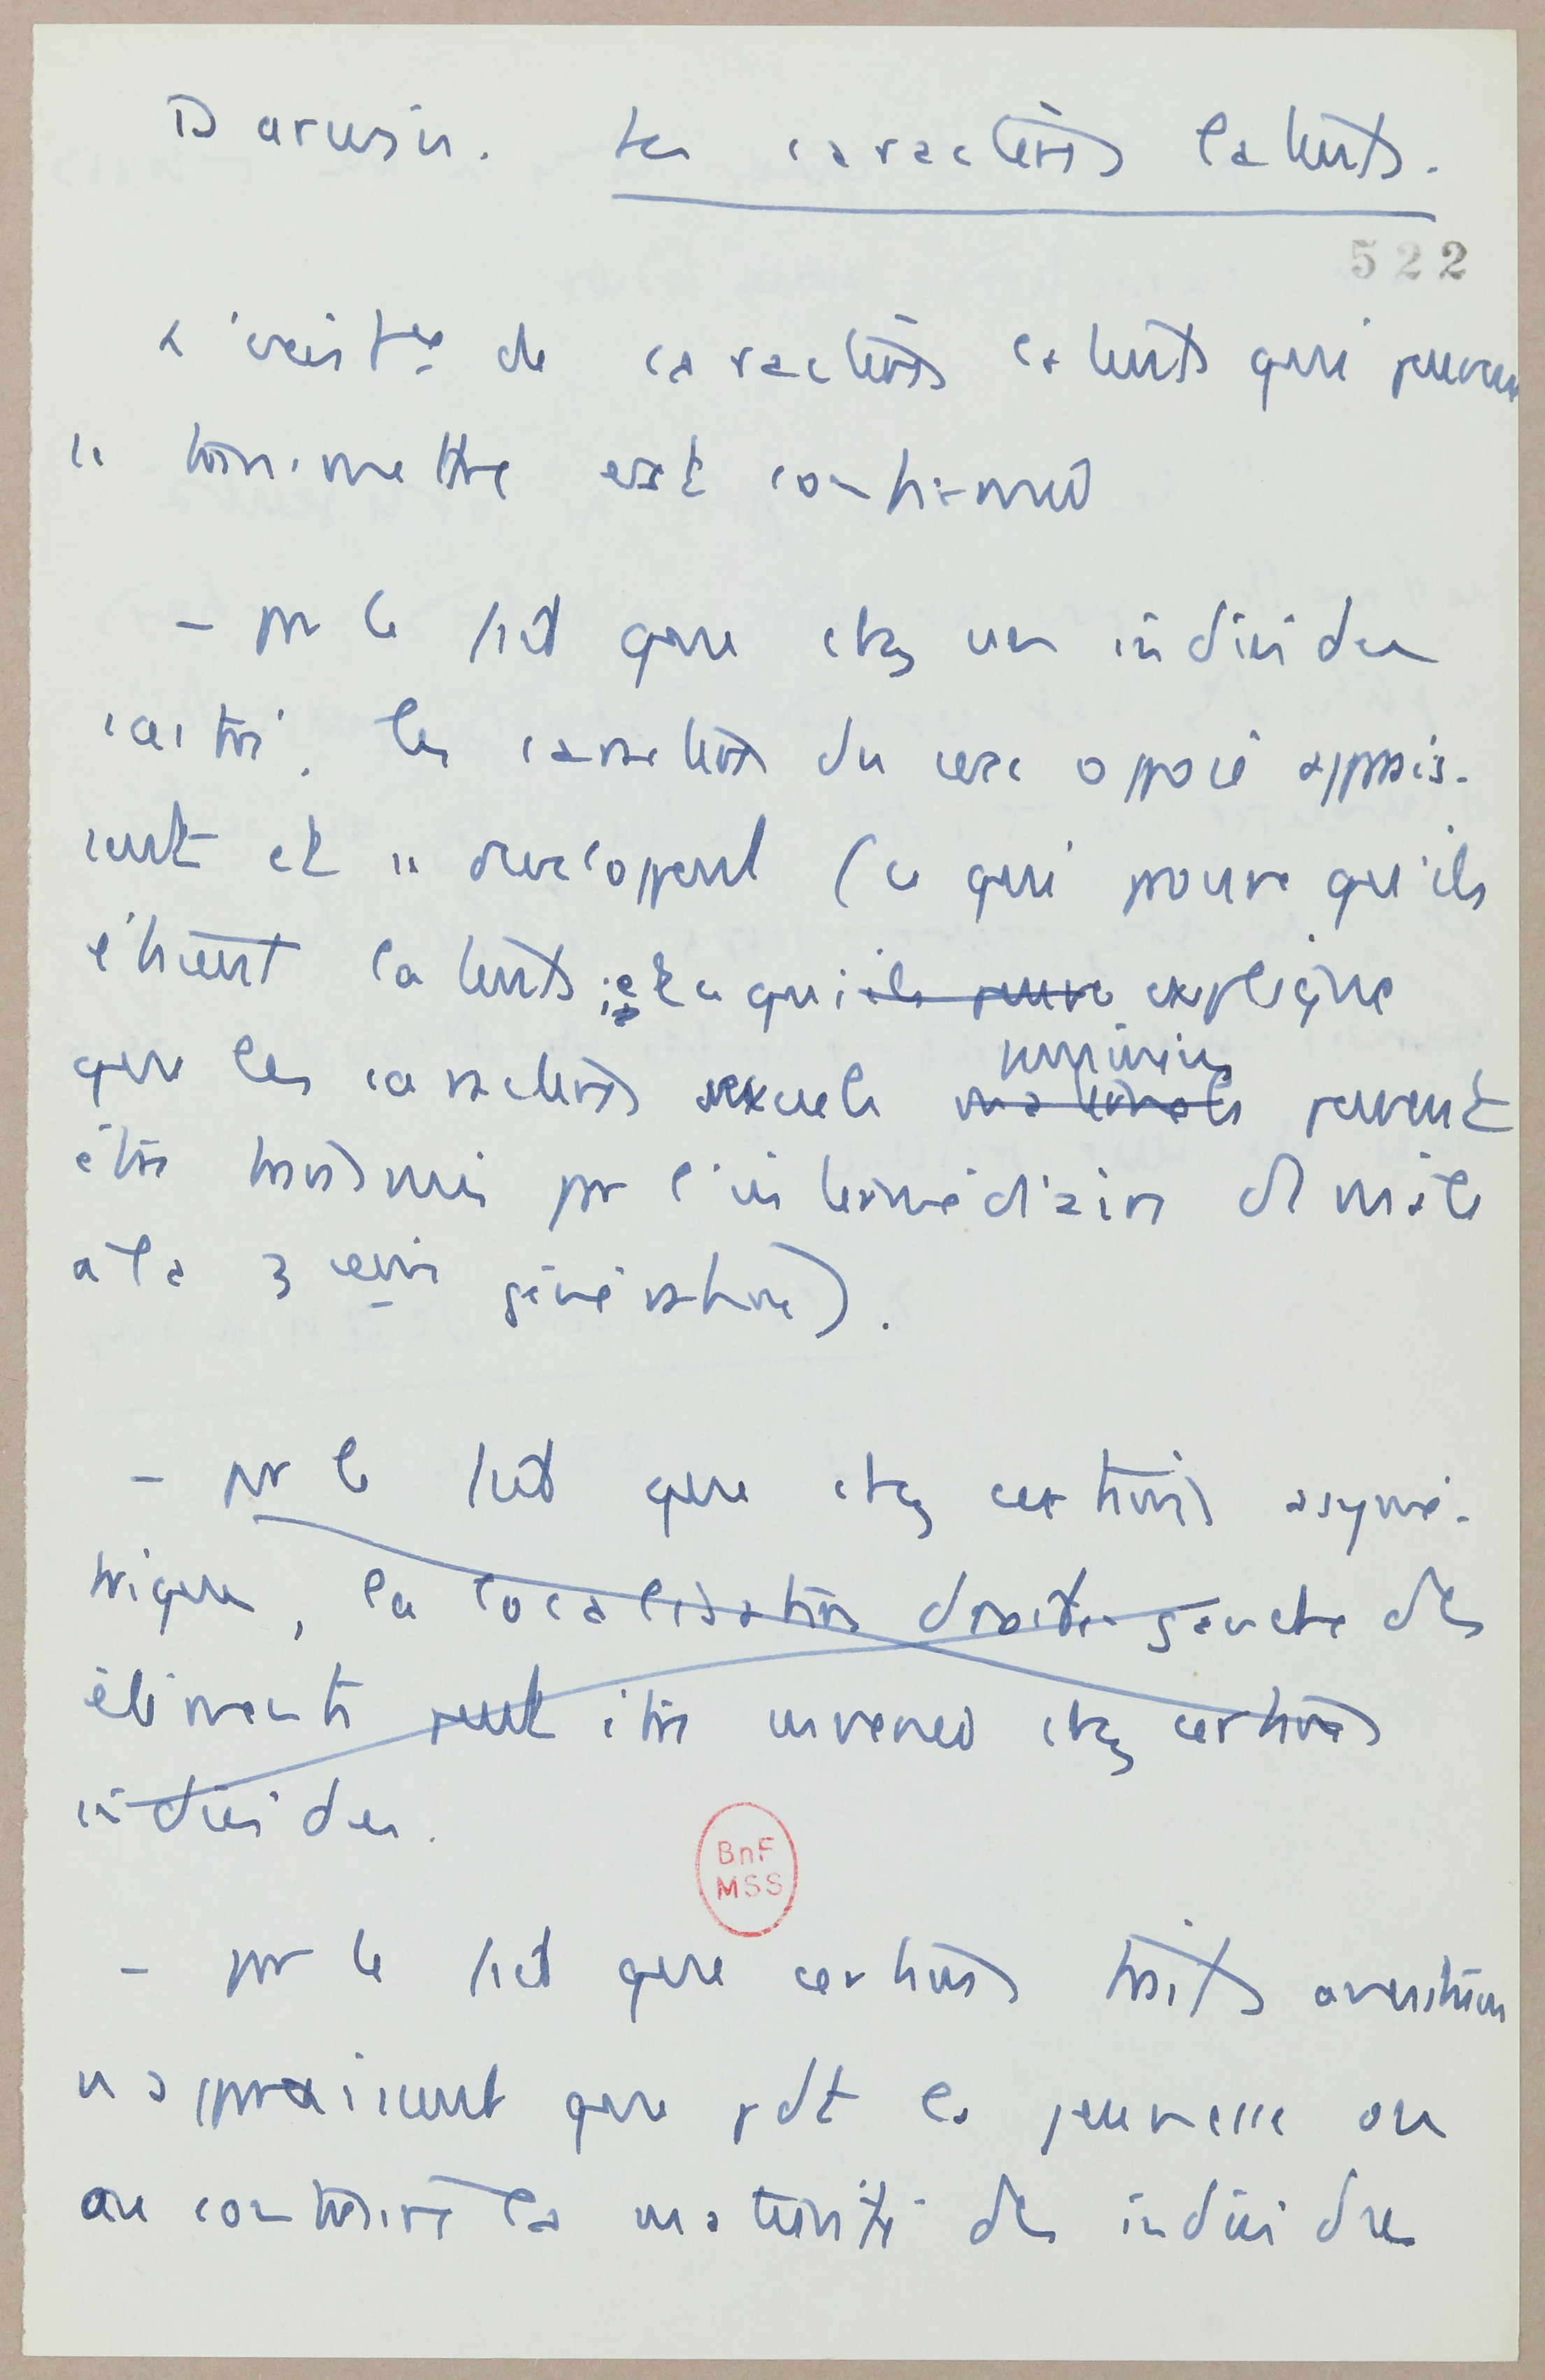 Darwin. Les caractères latents.
522
L'existce de caractères latents qui peuvent
se transmettre est confirmée
- par le fait que chez un individu
castré, les caractères du sexe opposé apparais-
sent et se développent (ce qui prouve qu'ils
étaient latents ; et ce qui ils peuve explique
que les caractères sexuels maternels féminins peuvent
être transmis par l'intermédiaire du mâle
à la 3ème génération).
- par le fait que chez certains asymé-
triques, la localisation droite-gauche des
éléments peut être inversée chez certains
individus.
BnF
MSS
- par le fait que certains traits
n'apparaissent que pdt la jeunesse ou
au contraire la maturité des individus